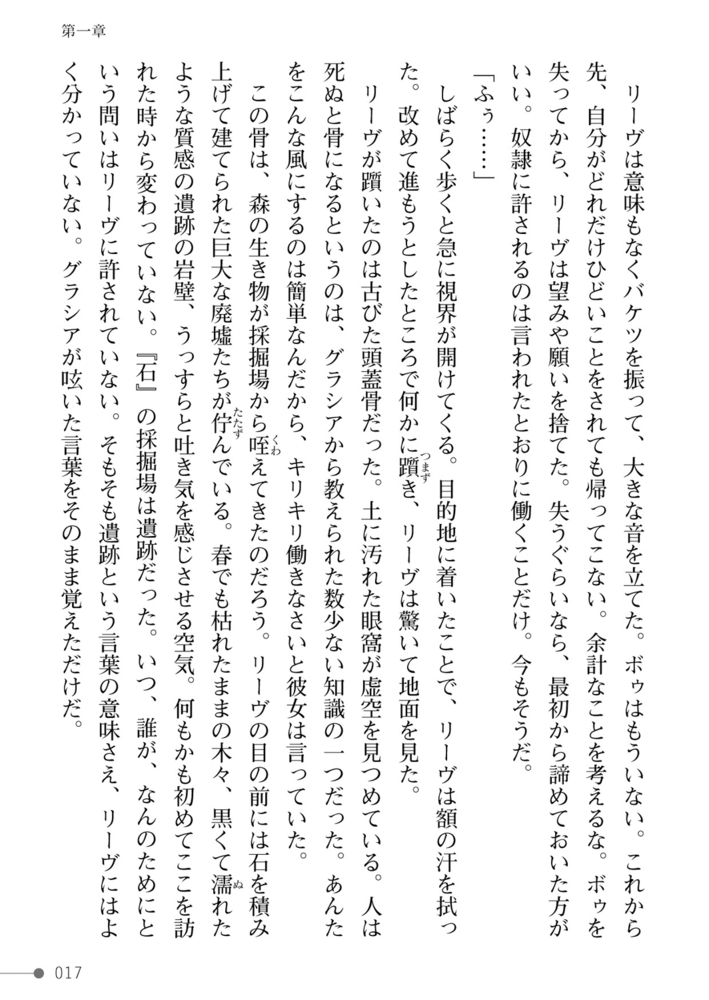 第一章
　リーヴは意味もなくバケツを振って、大きな音を立てた。ボゥはもういない。これから
先、自分がどれだけひどいことをされても帰ってこない。余計なことを考えるな。ボゥを
失ってから、リーヴは望みや願いを捨てた。失うぐらいなら、最初から諦めておいた方が
いい。奴隷に許されるのは言われたとおりに働くことだけ。今もそうだ。
「ふぅ……」
　しばらく歩くと急に視界が開けてくる。目的地に着いたことで、リーヴは額の汗を拭っ
た。改めて進もうとしたところで何かに躓き、リーヴは驚いて地面を見た。
つまず
　リーヴが躓いたのは古びた頭蓋骨だった。土に汚れた眼窩が虚空を見つめている。人は
死ぬと骨になるというのは、グラシアから教えられた数少ない知識の一つだった。あんた
をこんな風にするのは簡単なんだから、キリキリ働きなさいと彼女は言っていた。
　この骨は、森の生き物が採掘場から咥えてきたのだろう。リーヴの目の前には石を積み
くわ
上げて建てられた巨大な廃墟たちが佇んでいる。春でも枯れたままの木々、黒くて濡れた
たたず
ぬ
ような質感の遺跡の岩壁、うっすらと吐き気を感じさせる空気。何もかも初めてここを訪
れた時から変わっていない。『石』の採掘場は遺跡だった。いつ、誰が、なんのためにと
いう問いはリーヴに許されていない。そもそも遺跡という言葉の意味さえ、リーヴにはよ
く分かっていない。グラシアが呟いた言葉をそのまま覚えただけだ。
017